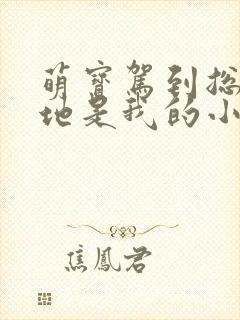 萌寶駕到總
地是我的小
焦鳳君